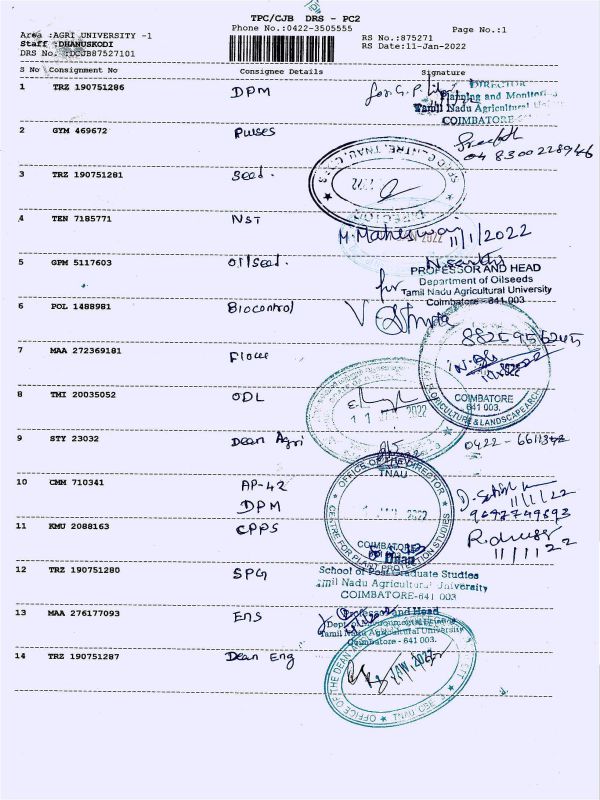 TPC/CJB DRS - PC2
Phone No.:0422-3505555
Page No.:1
Area :AGRI UNIVERSITY -1
Staff :DHANUSKODI
DRS No. :DCJB87527101
RS No.:875271
RS Date:11-Jan-2022
S No Consignment No Consignee Details Signature
1 TRZ 190751286 DPM
DIRECTOR
Planning and Monitoring
Tamil Nadu Agricultural
COIMBATORE
2 GYM 469672 Pulses
04 8300228946
3 TRZ 190751281 Seed.
SEED CENTRE, TNAU,
2022
DIRECTOR
4 TEN 7185771 NST
M. Maheswari 11/1/2022
5 GPM 5117603 Oilseed.
for
PROFESSOR AND HEAD
Department of Oilseeds
Tamil Nadu Agricultural University
Coimbatore - 641 003
6 POL 1488981 Biocontrol
7 MAA 272369181
FLORICULTURE & LANDSCAPE ARCH
COIMBATORE
641 003.
8 TMI 20035052 ODL
11 2022
9 STY 23032 Dean Agri
0422-
10 CMM 710341 AP-42
DPM
OFFICE OF THE DIRECTOR
TNAU
2022
COIMBATORE
CENTRE FOR PLANT PROTECTION STUDIES
11/1/22
11 KMU 2088163 CPPS
11/1/22
12 TRZ 190751280 SPG
School of Post Graduate Studies
Tamil Nadu Agricultural University
COIMBATORE-641 003
13 MAA 276177093 Ens
Professor and Head
Tamil Nadu Agricultural University
Coimbatore - 641 003.
14 TRZ 190751287 Dean Eng
OFFICE OF THE DEAN
JAN 2022
TNAU CBE.3